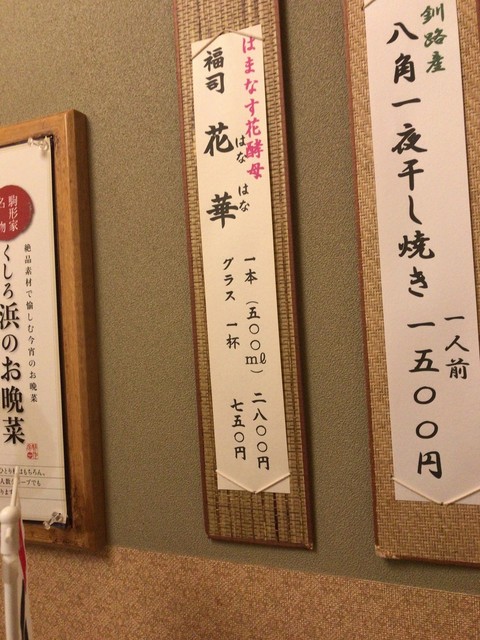 釧路産
八角一夜干し焼き
一人前
一五〇〇円
はまなす花酵母
福司
花華
はなはな
一本(五〇〇ml) 二八〇〇円
グラス 一杯 七五〇円
駒形家
名物
絶品素材で愉しむ今宵のお晩菜
くしろ浜のお晩菜